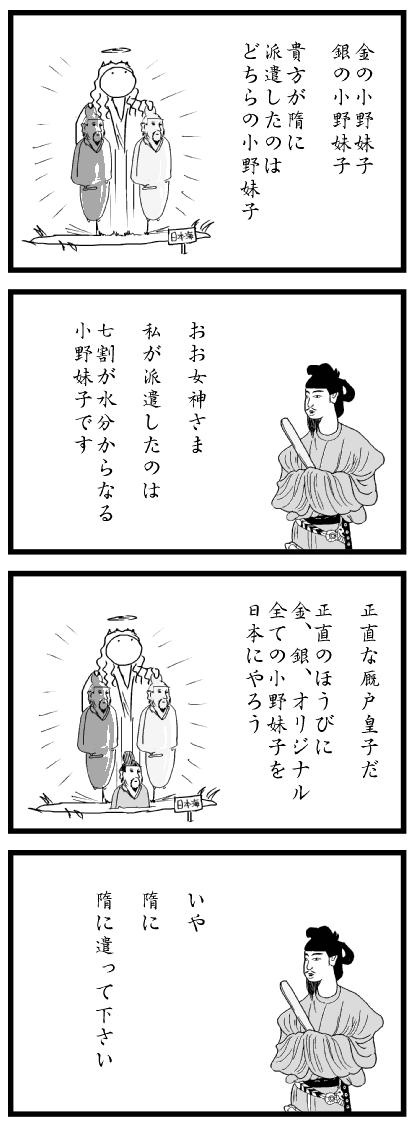 金の小野妹子
銀の小野妹子
貴方が隋に
派遣したのは
どちらの小野妹子
日本海
おお女神さま
私が派遣したのは
七割が水分からなる
小野妹子です
正直な厩戸皇子だ
正直のほうびに
金、銀、オリジナル
全ての小野妹子を
日本にやろう
日本海
いや
隋に
隋に遣って下さい